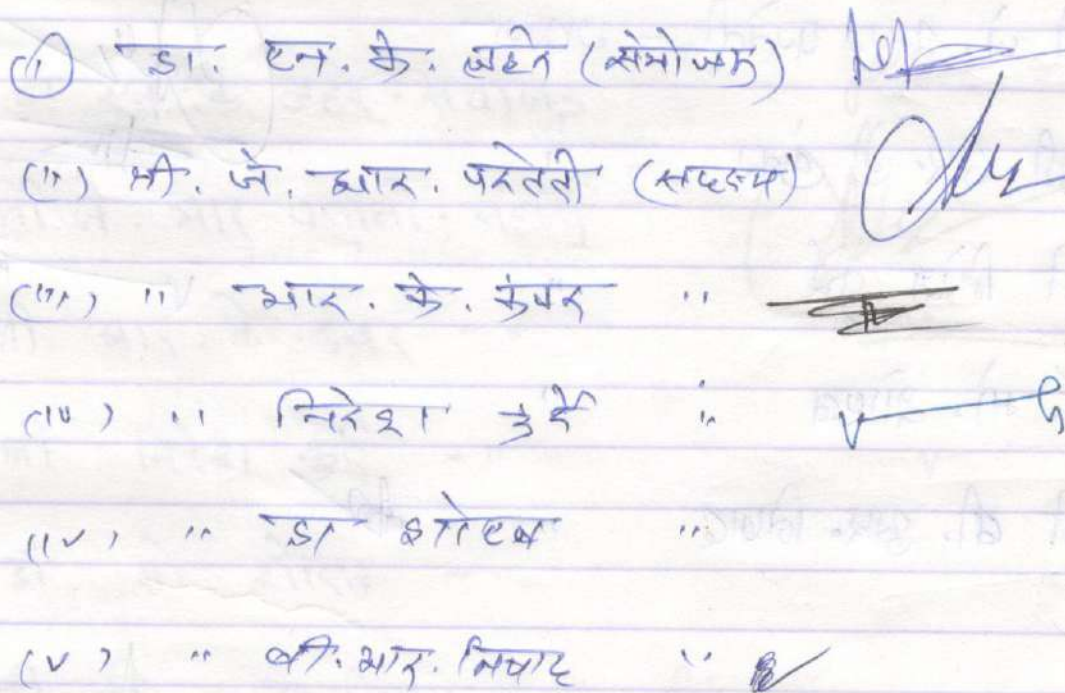 (i) डा. एन. के. लहरे (संयोजक)
(ii) श्री. जे. आर. परतेती (सदस्य)
(iii) " आर. के. कुंवर "
(iv) " "
(iv) " डा "
(v) " बी. आर. निषाद "